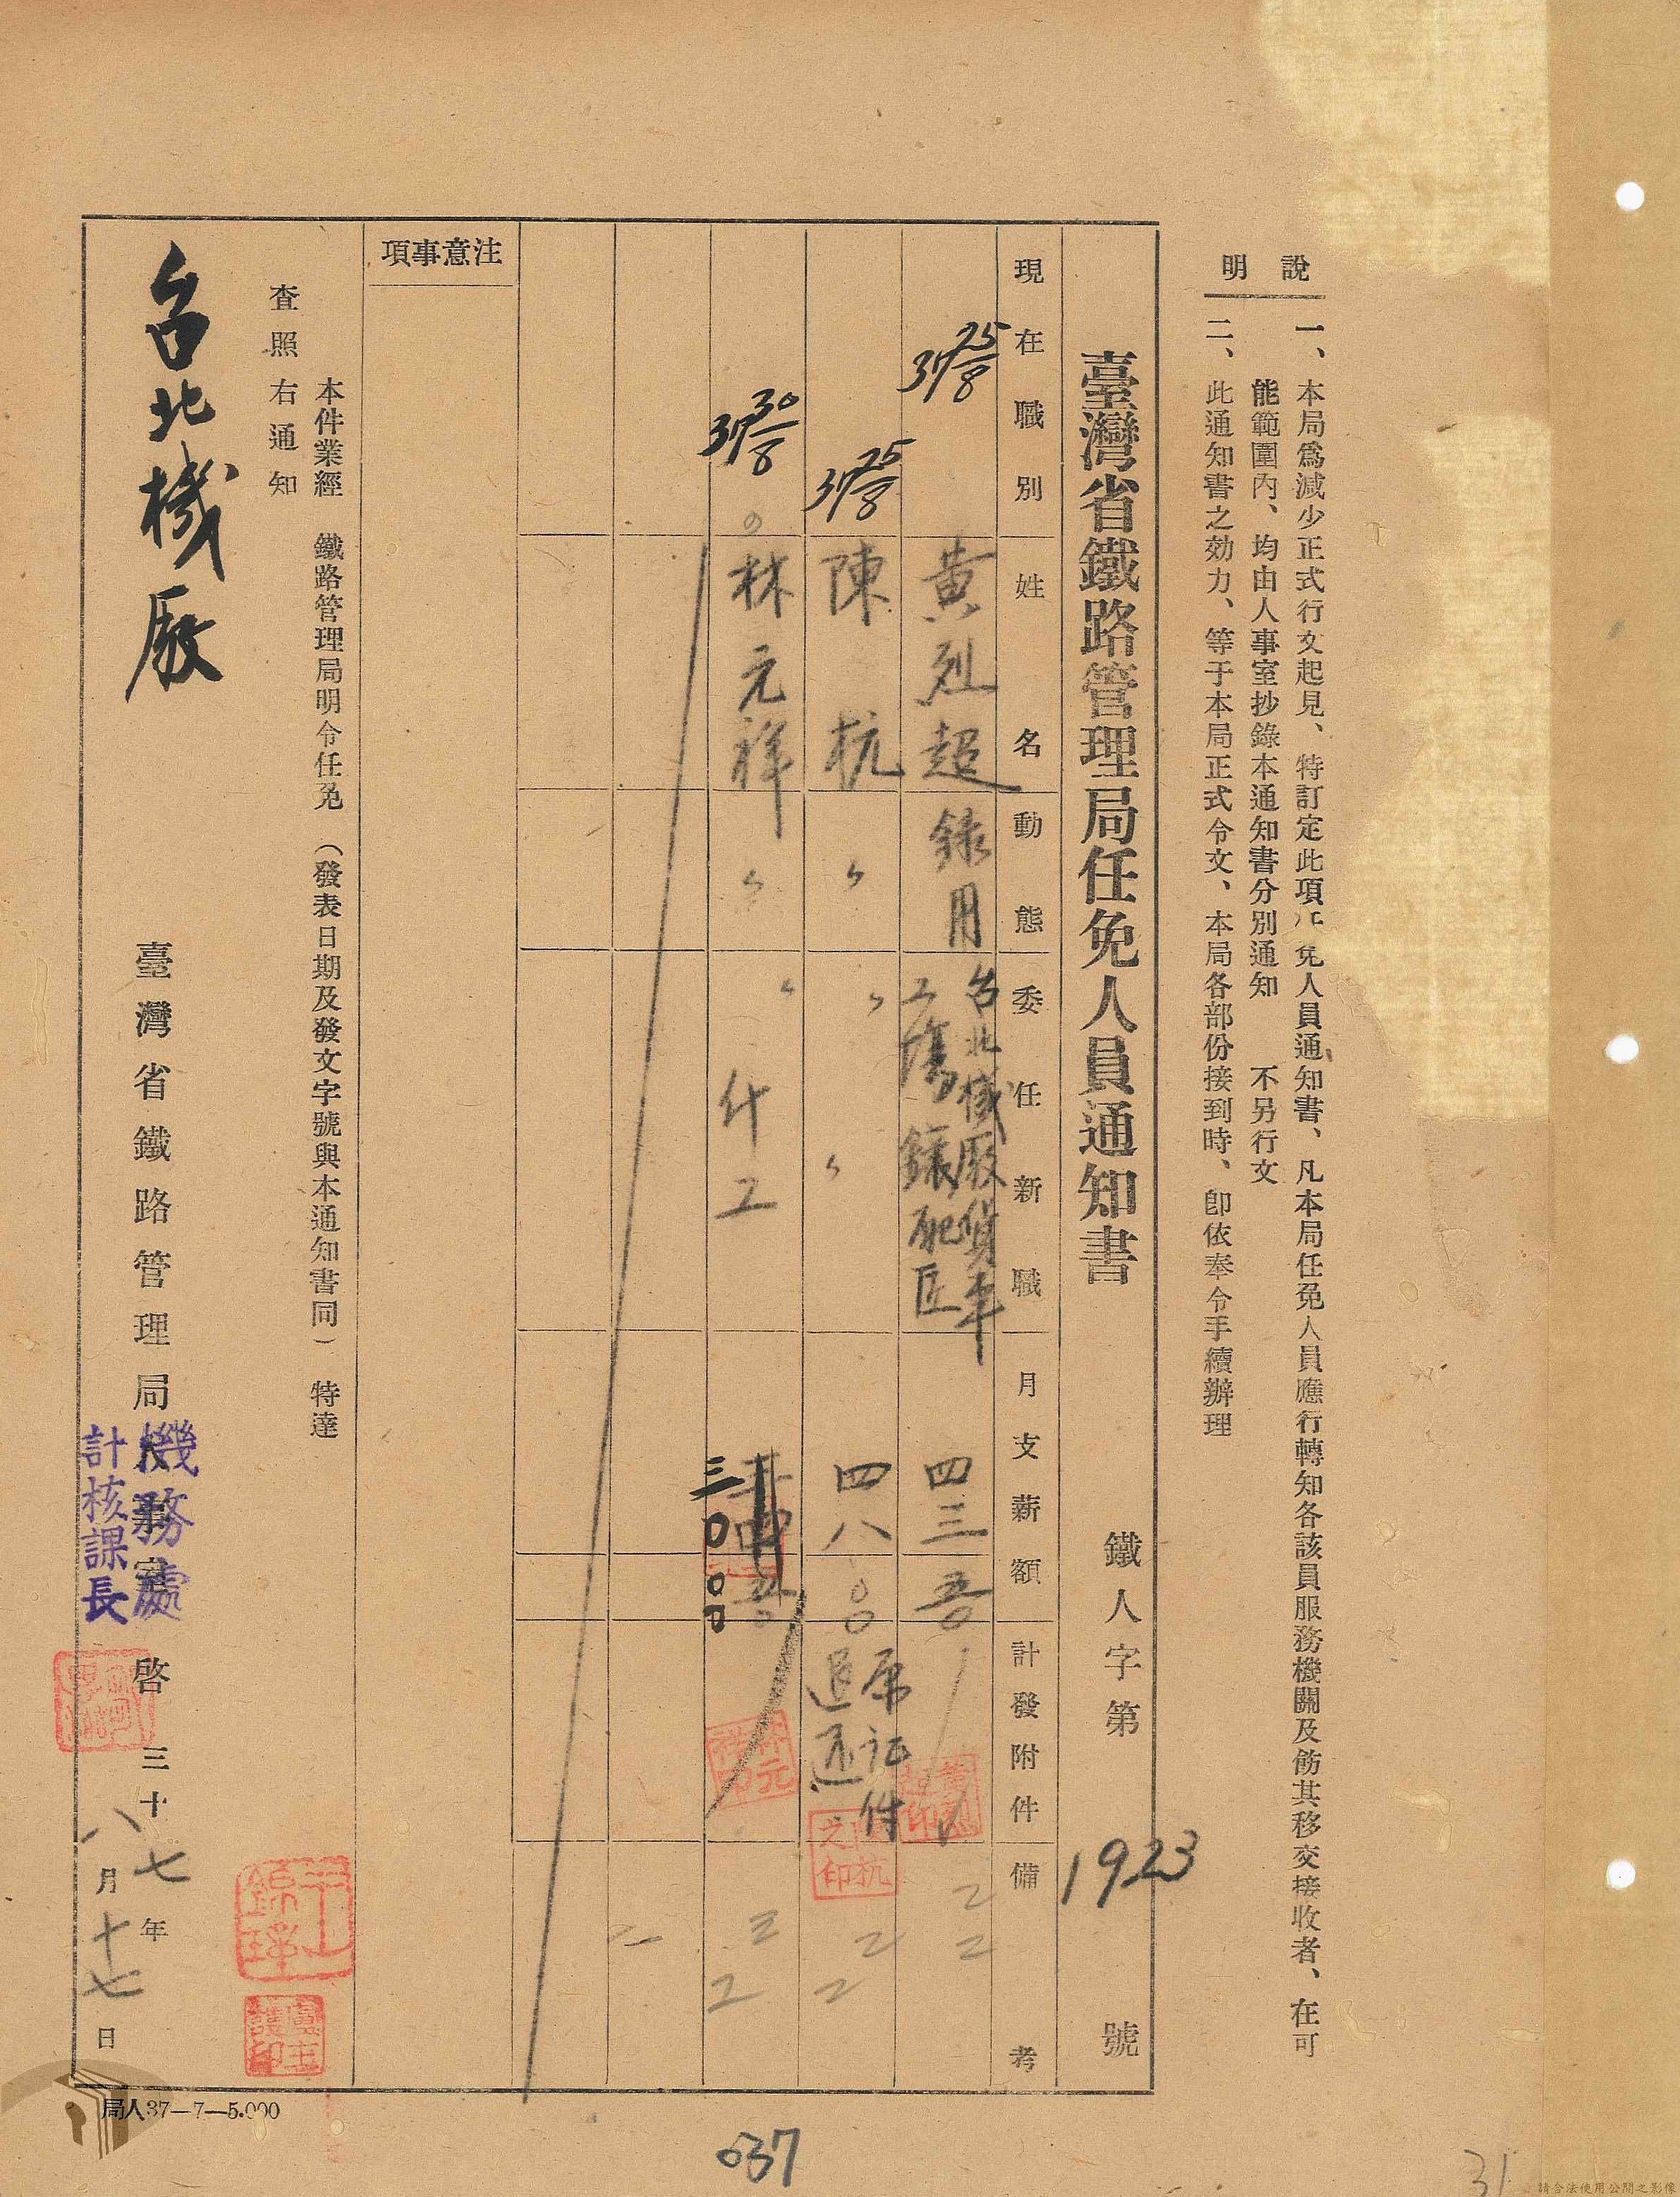 說明
一、本局爲減少正式行文起見、特訂定此項 免人員通知書、凡本局任免人員應行轉知各該員服務機關及飭其移交接收者、在可
能範圍內、均由人事室抄錄本通知書分別通知　不另行文
二、此通知書之効力、等于本局正式令文、本局各部份接到時、卽依奉令手續辦理
臺灣省鐵路管理局任免人員通知書
鐵人字第1923號
現在職別　姓名　動態　委任新職　月支薪額　計發附件　備考
37 25/8　黃烈超　錄用　台北機厰貨車
工場鑲配匠　四三 吾〇
37 25/8　陳杭　〃　〃　〃　四八 〇〇　原証件
退还
37 30/8　林元祥　〃　〃　什工　三〇 〇〇
注意事項
本件業經　鐵路管理局明令任免　（發表日期及發文字號與本通知書同）　特達
查照　右通知
台北機厰
臺灣省鐵路管理局人事室　啓　三十七年
八月十七日
機務處
計核課長
局人37—7—5.000
037
31
請合法使用公開之影像